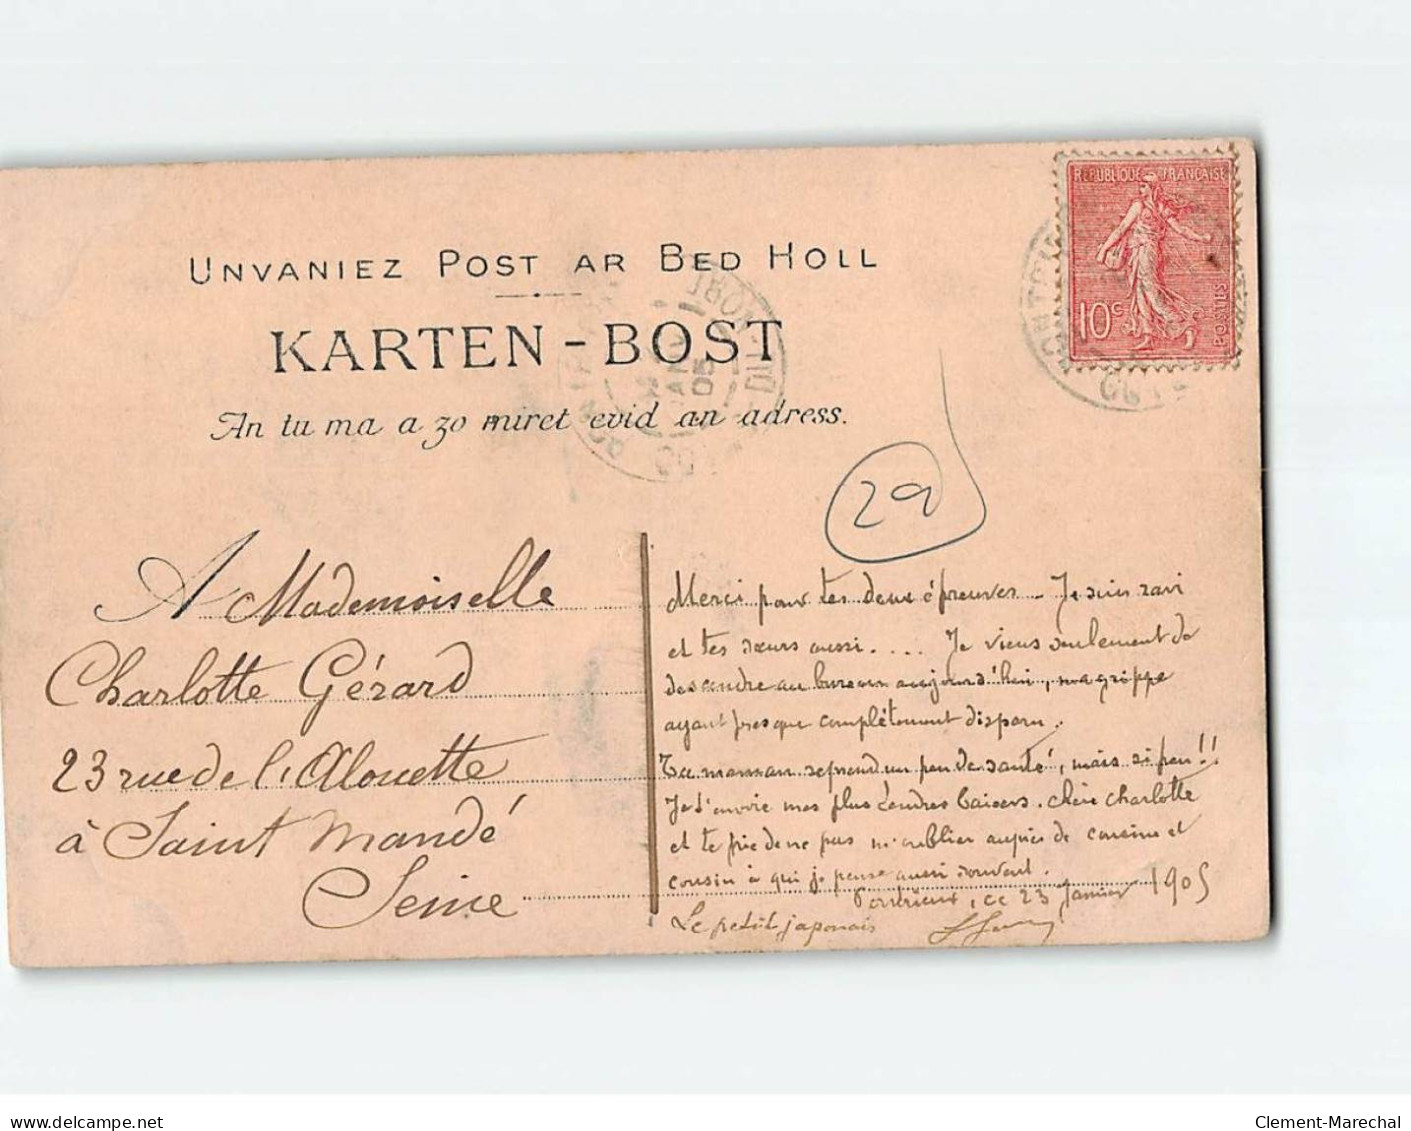 UNVANIEZ POST AR BED HOLL
KARTEN-BOST
An tu ma a zo miret evid an adress.
REPUBLIQUE FRANÇAISE
10c
POSTES
JANV
05
29
A Mademoiselle
Charlotte Gérard
23 rue de l'Alouette
à Saint Mandé
Seine
Merci pour tes deux épreuves. Je suis ravi
et tes sœurs aussi. ... Je viens seulement de
descendre au bureau aujourd'hui, ma grippe
ayant presque complètement disparu.
Ta maman reprend un peu de santé, mais si peu!!
Je t'envoie mes plus tendres baisers. chère Charlotte
et te prie de ne pas m'oublier auprès de cousine et
cousin à qui je pense aussi souvent.
Pontrieux, ce 23 Janvier 1905
Le petit japonais
delcampe.net
Clement-Marechal